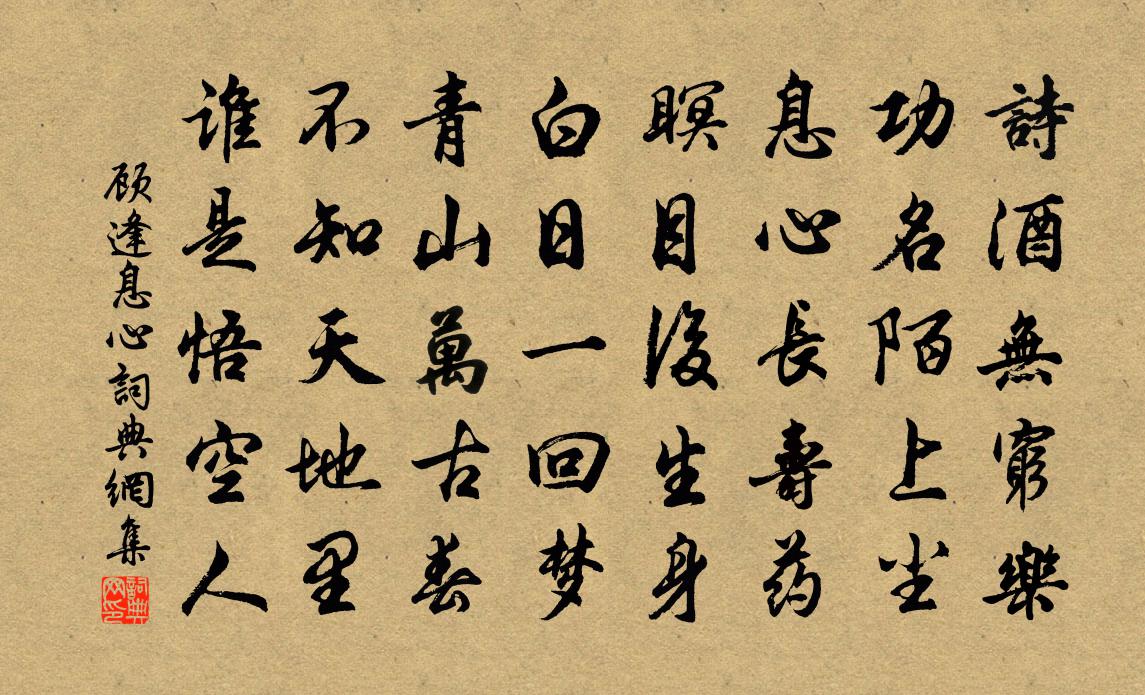 詩酒無窮樂
功名陌上尘
息心長壽药
瞑目後生身
白日一回梦
青山萬古春
不知天地里
谁是悟空人
顾逢息心詞典網集
詞典網印